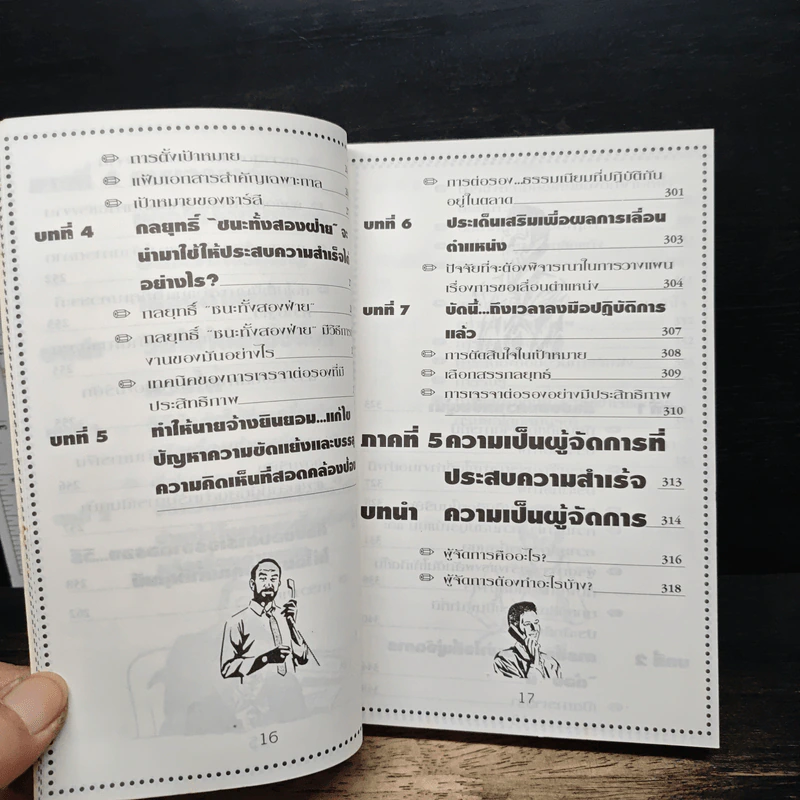 การตั้งเป้าหมาย
แฟ้มเอกสารสำคัญเฉพาะกาล
เป้าหมายของชาร์ลี
บทที่ 4 กลยุทธ์ "ชนะทั้งสองฝ่าย" จะ
นำมาใช้ให้ประสบความสำเร็จได้
อย่างไร?
กลยุทธ์ "ชนะทั้งสองฝ่าย"
กลยุทธ์ "ชนะทั้งสองฝ่าย" มีวิธีการ
งานของมันอย่างไร
เทคนิคของการเจรจาต่อรองที่มี
ประสิทธิภาพ
บทที่ 5 ทำให้นายจ้างยินยอม...แก้ไข
ปัญหาความขัดแย้งและบรรลุ
ความคิดเห็นที่สอดคล้องป้อง
16
การต่อรอง...ธรรมเนียมที่ปฏิบัติกัน
อยู่ในตลาด 301
บทที่ 6 ประเด็นเสริมเพื่อผลการเลื่อน
ตำแหน่ง 303
ปัจจัยที่จะต้องพิจารณาในการวางแผน
เรื่องการขอเลื่อนตำแหน่ง 304
บทที่ 7 บัดนี้...ถึงเวลาลงมือปฏิบัติการ
แล้ว 307
การตัดสินใจในเป้าหมาย 308
เลือกสรรกลยุทธ์ 309
การเจรจาต่อรองอย่างมีประสิทธิภาพ
310
ภาคที่ 5 ความเป็นผู้จัดการที่
ประสบความสำเร็จ 313
บทนำ ความเป็นผู้จัดการ 314
ผู้จัดการคืออะไร? 316
ผู้จัดการต้องทำอะไรบ้าง? 318
17